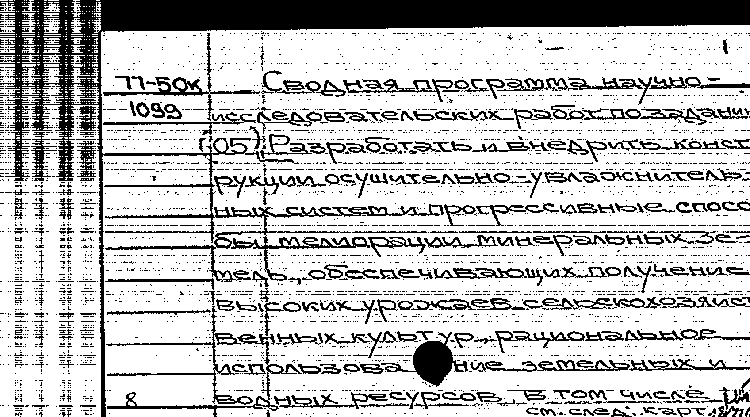 77-50к Сводная программа научно-
1099 исследовательских работ по задани
(05) Разработать и внедрить конст
рукции осушительно-увлажнитель-
ных систем и прогрессивные спосо
бы мелиорации минеральных зе-
мель, обеспечивающих получение
высоких урожаев сельскохозяйст
венных культур, рациональное
использова ние земельных и
8 водных ресурсов, в том числе
см. след. карт.